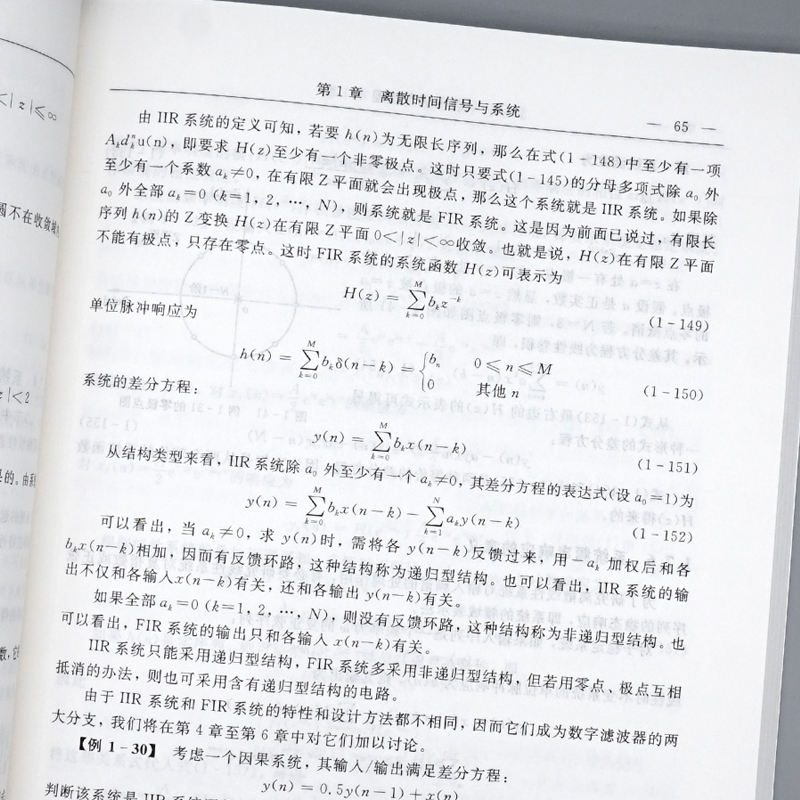 第1章 离散时间信号与系统
— 65 —
由 IIR 系统的定义可知，若要 h(n)为无限长序列，那么在式(1-148)中至少有一项
Aₖdₖⁿu(n)，即要求 H(z)至少有一个非零极点。这时只要式(1-145)的分母多项式除 a₀ 外
至少有一个系数 aₖ≠0，在有限 Z 平面就会出现极点，那么这个系统就是 IIR 系统。如果除
a₀ 外全部 aₖ=0 (k=1, 2, …, N)，则系统就是 FIR 系统。这是因为前面已说过，有限长
序列 h(n)的 Z 变换 H(z)在有限 Z 平面 0<|z|<∞收敛。也就是说，H(z)在有限 Z 平面
不能有极点，只存在零点。这时 FIR 系统的系统函数 H(z)可表示为
H(z) = ∑_{k=0}^{M} bₖz⁻ᵏ (1-149)
单位脉冲响应为
h(n) = ∑_{k=0}^{M} bₖδ(n-k) = { bₙ 0≤n≤M
0 其他 n (1-150)
系统的差分方程：
y(n) = ∑_{k=0}^{M} bₖx(n-k) (1-151)
从结构类型来看，IIR 系统除 a₀ 外至少有一个 aₖ≠0，其差分方程的表达式(设 a₀=1)为
y(n) = ∑_{k=0}^{M} bₖx(n-k) - ∑_{k=1}^{N} aₖy(n-k) (1-152)
可以看出，当 aₖ≠0，求 y(n)时，需将各 y(n-k)反馈过来，用-aₖ 加权后和各
bₖx(n-k)相加，因而有反馈环路，这种结构称为递归型结构。也可以看出，IIR 系统的输
出不仅和各输入x(n-k)有关，还和各输出 y(n-k)有关。
如果全部 aₖ=0 (k=1, 2, …, N)，则没有反馈环路，这种结构称为非递归型结构。也
可以看出，FIR 系统的输出只和各输入 x(n-k)有关。
IIR 系统只能采用递归型结构，FIR 系统多采用非递归型结构，但若用零点、极点互相
抵消的办法，则也可采用含有递归型结构的电路。
由于 IIR 系统和 FIR 系统的特性和设计方法都不相同，因而它们成为数字滤波器的两
大分支，我们将在第 4 章至第 6 章中对它们加以讨论。
【例 1-30】 考虑一个因果系统，其输入/输出满足差分方程：
y(n) = 0.5y(n-1)+x(n)
判断该系统是 IIR 系统